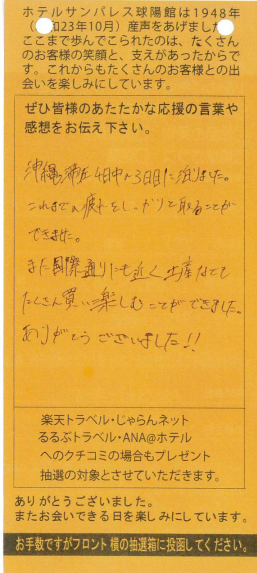 ホテルサンパレス球陽館は1948年
(和23年10月)産声をあげました
ここまで歩んでこられたのは、たくさん
のお客様の笑顔と、支えがあったからで
す。これからもたくさんのお客様との出
会いを楽しみにしています。
ぜひ皆様のあたたかな応援の言葉や
感想をお伝え下さい。
沖縄滞在4日中の3日目に泊りました。
これまでの疲れをしっかりと取ることが
できました。
また国際通りにも近く土産なども
たくさん買い楽しむことができました。
ありがとうございました!!
楽天トラベル・じゃらんネット
るるぶトラベル・ANA@ホテル
へのクチコミの場合もプレゼント
抽選の対象とさせていただきます。
ありがとうございました。
またお会いできる日を楽しみにしています。
お手数ですがフロント横の抽選箱に投函してください。